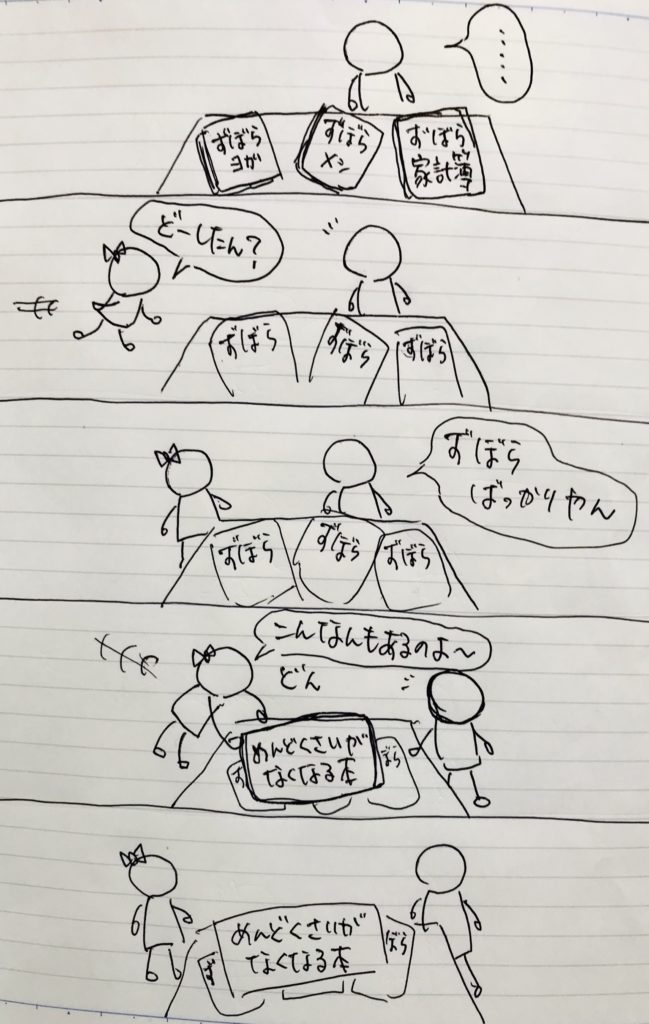 ......
ずぼら
ヨガ
ずぼら
メシ
ずぼら
家計簿
どーしたん?
ずぼら
ずぼら
ずぼら
ずぼら
ばっかりやん
ずぼら
ずぼら
ずぼら
こんなんもあるのよ〜
どん
めんどくさいが
なくなる本
ず
ぼら
めんどくさいが
なくなる本
ぼら